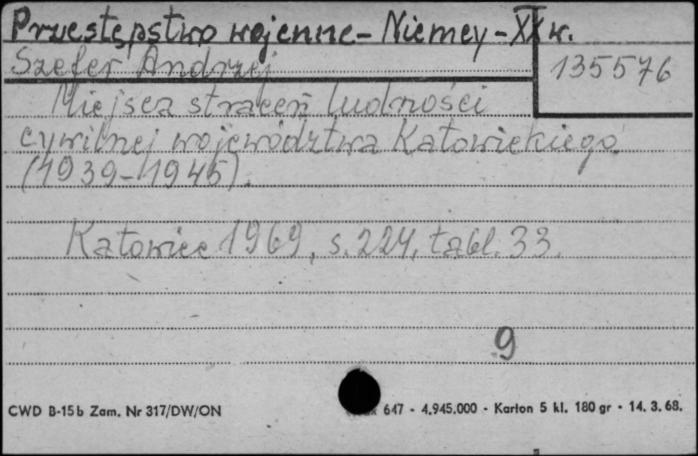 Przestępstwo wojenne - Niemcy - XX w.
Szefer Andrzej
135576
Miejsca straceń ludności
cywilnej województwa Katowickiego
(1939-1945).
Katowice 1969, s. 224, tabl. 33.
9
CWD B-15b Zam. Nr 317/DW/ON
647 - 4.945.000 - Karton 5 kl. 180 gr - 14. 3. 68.